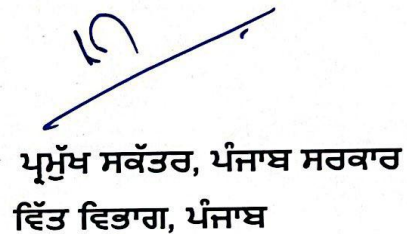 ਪ੍ਰਮੁੱਖ ਸਕੱਤਰ, ਪੰਜਾਬ ਸਰਕਾਰ
ਵਿੱਤ ਵਿਭਾਗ, ਪੰਜਾਬ